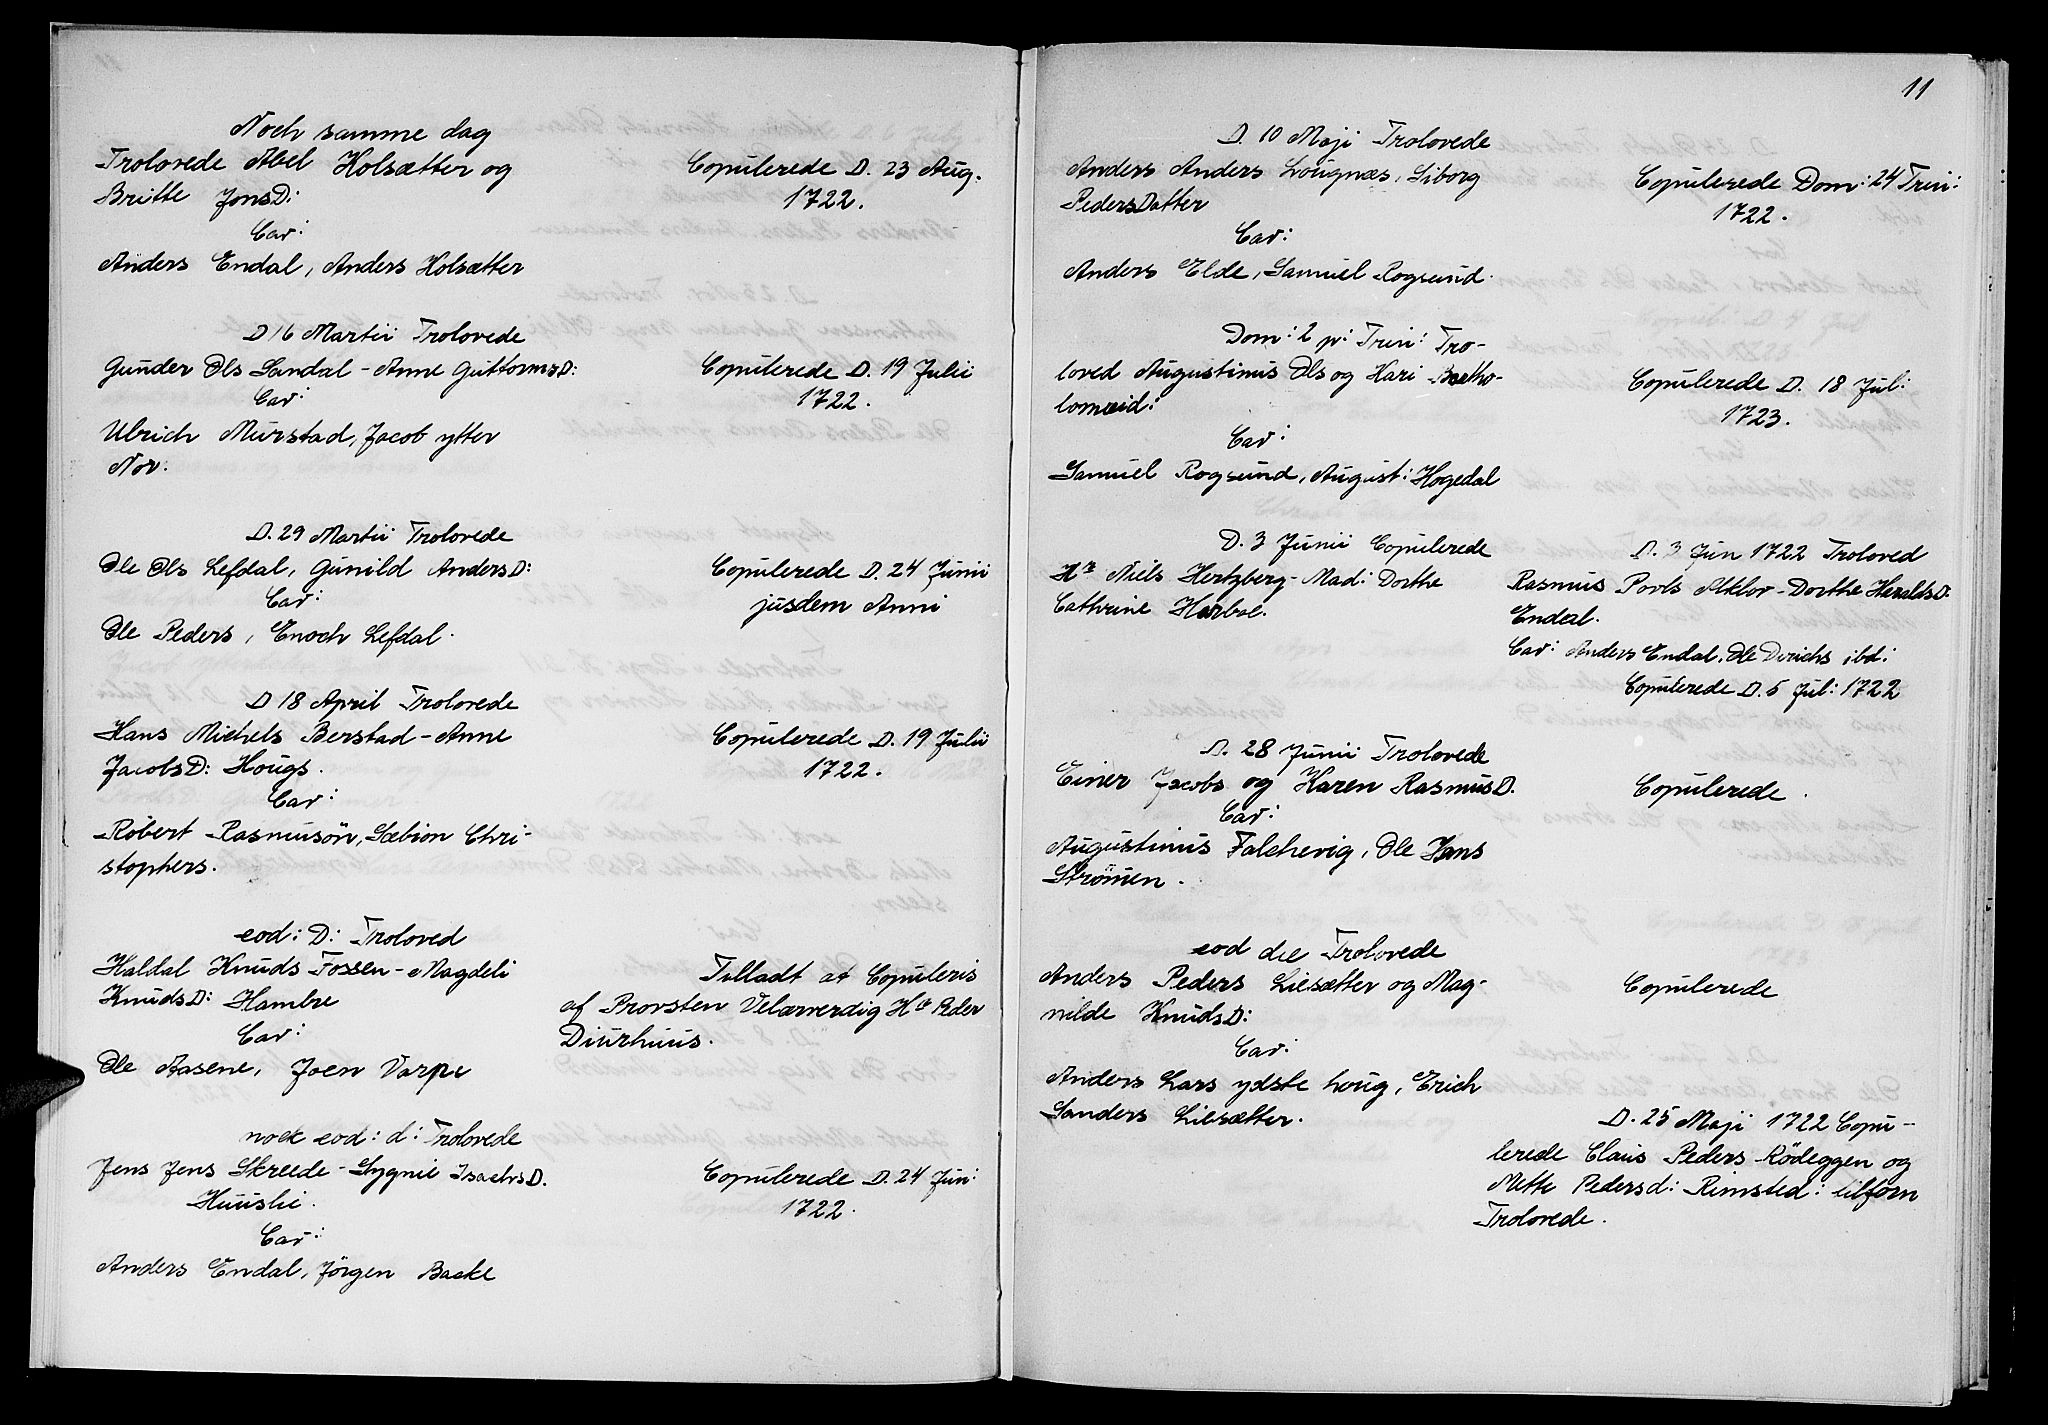 Noch samme dag
Trolovede Abel Holsætter og
Britte JonsD:
Cav:
Anders Endal, Anders Holsætter
Copulerede D. 23 Aug.
1722.
D 16 Martii Trolovede
Gunder Ols Sandal - Anne GuttormsD:
Cav:
Ulrich Murstad, Jacob ytter
Nor.
Copulerede D. 19 Julii
1722.
D. 29 Martii Trolovede
Ole Ols Lefdal, Gunild AndersD:
Cav:
Ole Peders, Enoch Lefdal.
Copulerede D. 24 Junii
jusdem Anni
D 18 April Trolovede
Hans Michels Berstad - Anne
JacobsD: Hougs.
Cav:
Robert Rasmusön, Sæbion Chri-
stophers.
Copulerede D. 19 Julii
1722.
eod: D: Troloved
Haldal Knuds Fossen - Magdeli
KnudsD: Hambre
Cav:
Ole Aasene, Joen Varpe
Tilladt at Copuleris
af Provsten Velærverdig Hr Peder
Diurhuus.
nock eod: d: Trolovede
Jens Jens Skreede - Sygnie IsachsD.
Huuslie.
Cav:
Anders Endal, Jörgen Bakke
Copulerede D. 24 Jun:
1722.
11
D. 10 Maji Trolovede
Anders Anders Lougnæs, Siborg
PedersDatter
Cav:
Anders Elde, Samuel Rogsund.
Copulerede Dom: 24 Trin:
1722.
Dom: 2 p: Trin: Tro-
loved Augustinus Ols og Kari Bartho-
lomæid:
Cav:
Samuel Rogsund, August: Hogedal
Copulerede D. 18 Jul:
1723.
D. 3 Junii Copulerede
Hr Niels Hertzberg - Mad: Dorthe
Cathrine Harboe.
D. 3 Jun 1722 Troloved
Rasmus Povls Alklov - Dorthe HeraldsD.
Endal.
Cav: Anders Endal, Ole Dirichs ibd:
Copulerede D. 5 Jul: 1722
D. 28 Junii Trolovede
Einer Jacobs og Karen RasmusD.
Cav:
Augustinus Falchevig, Ole Jans
Strömen.
Copulerede.
eod die Trolovede
Anders Peders Liesætter og Mag-
nilde KnudsD:
Cav:
Anders Lars ydste houg, Erich
Sanders Liesætter.
Copulerede
D. 25 Maji 1722 Copu-
lerede Claus Peders Rödeggen og
Mette Pedersd: Rimsted: tilforn
Trolovede.